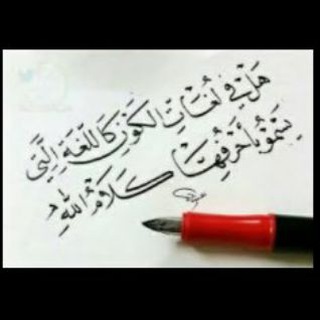 هَلْ فِي لُغَاتِ الكَوْنِ كَاللُّغَةِ الَّتِي
يَسْمُو بِأَحْرُفِهَا كَلَامُ اللهِ